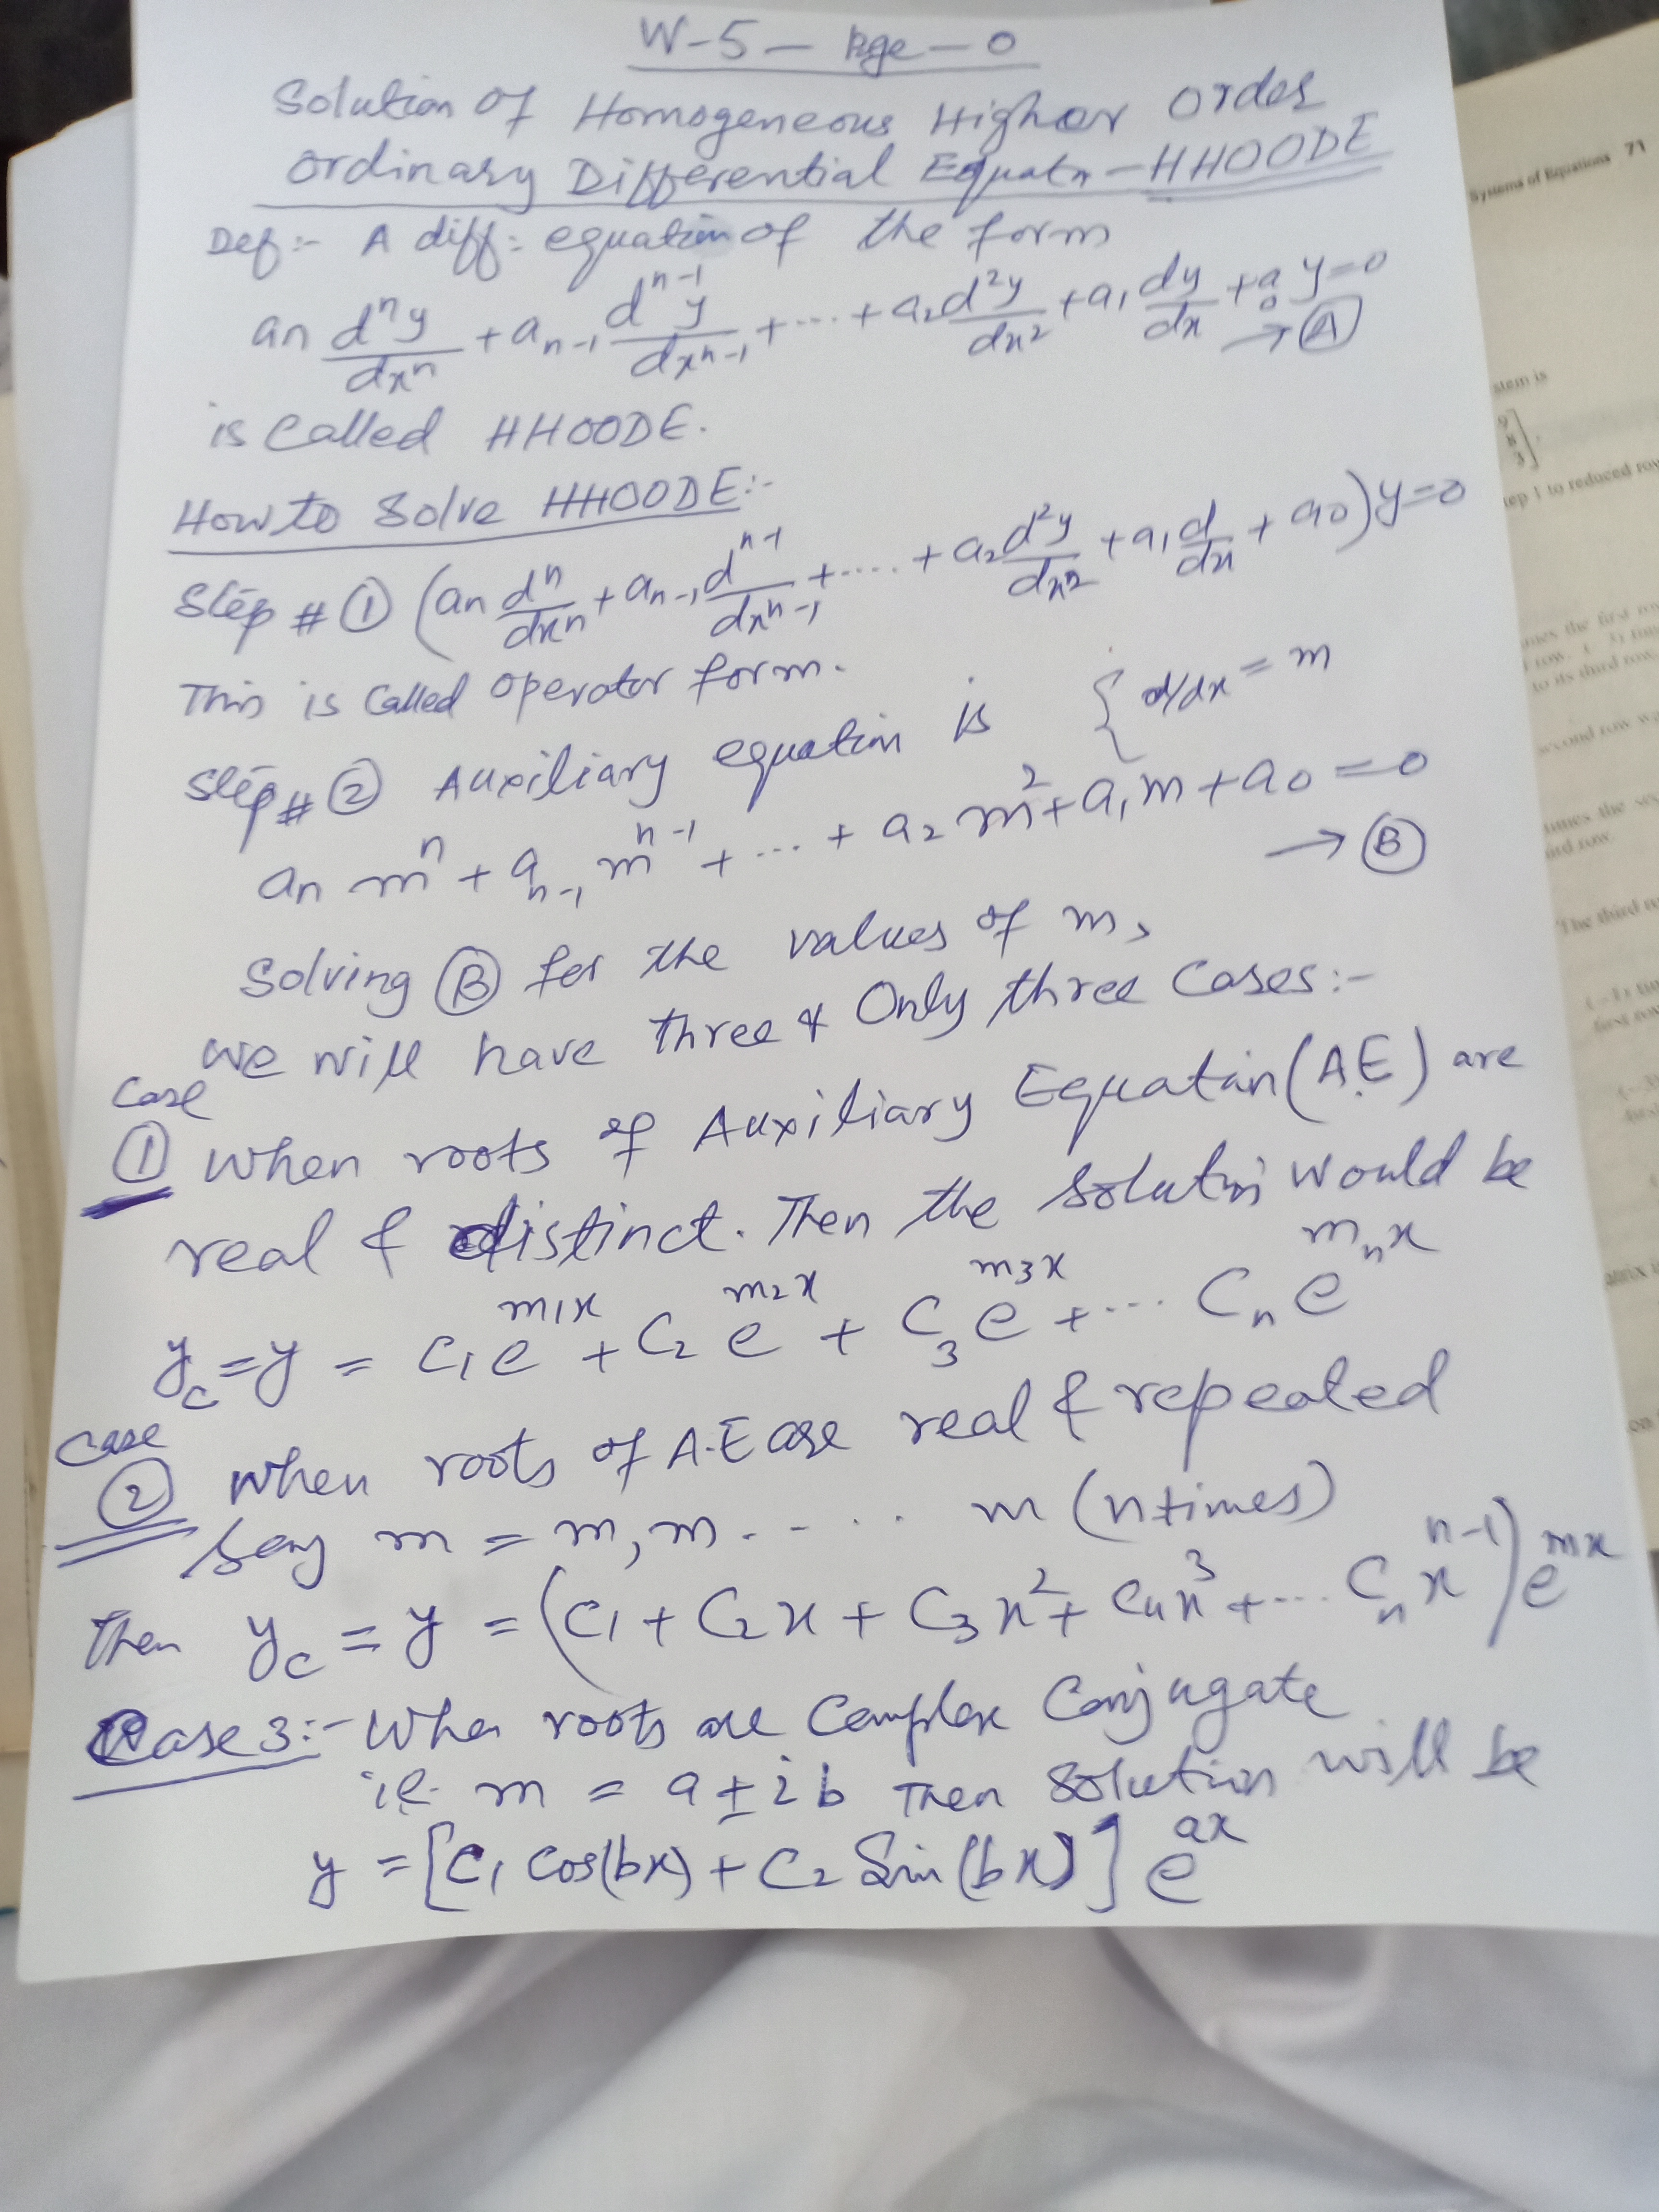 W-5 — Page — 0
Solution of Homogeneous Higher Order
Ordinary Differential Equatn — HHOODE
Def:- A diff: equation of the form
an dⁿy/dxⁿ + an-1 dⁿ⁻¹y/dxⁿ⁻¹ + ... + a2 d²y/dx² + a1 dy/dx + a0 y = 0
→ (A)
is Called HHOODE.
How to Solve HHOODE:-
Step # ① (an dⁿ/dxⁿ + an-1 dⁿ⁻¹/dxⁿ⁻¹ + .... + a2 d²y/dx² + a1 d/dx + a0) y = 0
This is Called operator form.
{ d/dx = m
Step # ② Auxiliary equation is
an mⁿ + an-1 mⁿ⁻¹ + ... + a2 m² + a1 m + a0 = 0
→ (B)
Solving (B) for the values of m,
we will have three & Only three Cases:-
Case
① When roots of Auxiliary Equation (A.E) are
real & distinct. Then the solution would be
yc = y = C1 e^m1x + C2 e^m2x + C3 e^m3x + ... Cn e^mnx
Case
② When roots of A.E are real & repeated
Say m = m, m - - . . m (n times)
Then yc = y = (C1 + C2x + C3x² + C4x³ + ... Cn xⁿ⁻¹) e^mx
Case 3:- When roots are Complex Conjugate
i.e. m = a ± ib Then Solution will be
y = [C1 Cos(bx) + C2 Sin(bx)] e^ax
Systems of Equations 71
stem is
ep 1 to reduced row
The third ro